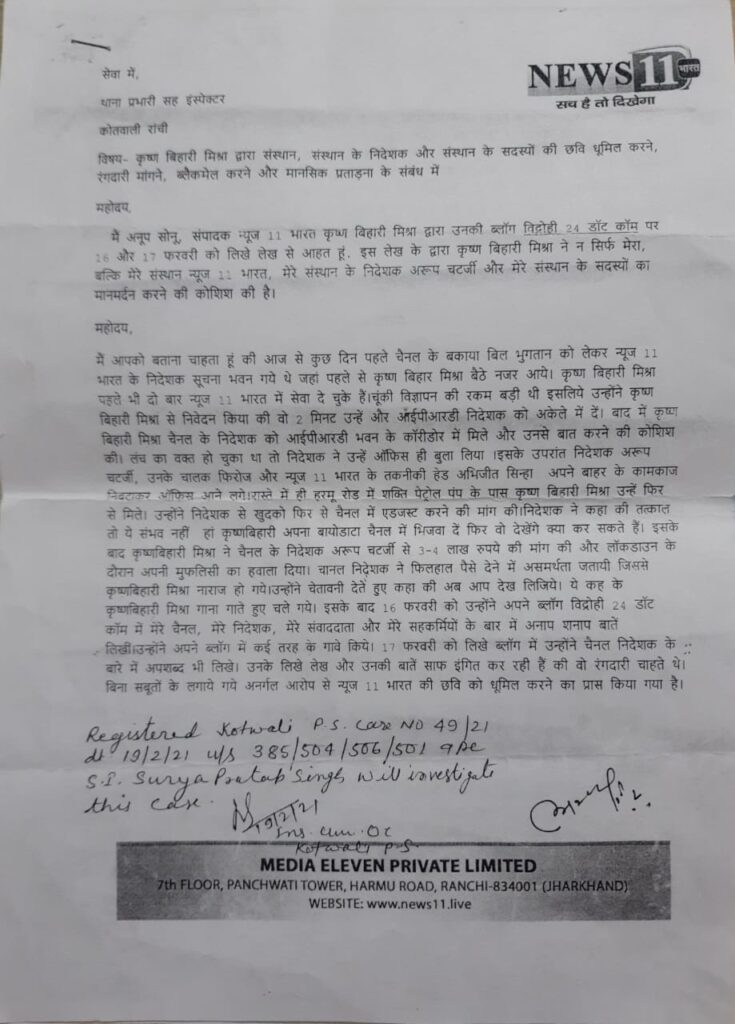 सेवा में,
NEWS 11 भारत
सच है तो दिखेगा
थाना प्रभारी सह इंस्पेक्टर
कोतवाली रांची
विषय- कृष्ण बिहारी मिश्रा द्वारा संस्थान, संस्थान के निदेशक और संस्थान के सदस्यों की छवि धूमिल करने,
रंगदारी मांगने, ब्लैकमेल करने और मानसिक प्रताड़ना के संबंध में
महोदय,
मैं अनूप सोनू, संपादक न्यूज 11 भारत कृष्ण बिहारी मिश्रा द्वारा उनकी ब्लॉग विद्रोही 24 डॉट कॉम पर
16 और 17 फरवरी को लिखे लेख से आहत हूं. इस लेख के द्वारा कृष्ण बिहारी मिश्रा ने न सिर्फ मेरा,
बल्कि मेरे संस्थान न्यूज 11 भारत, मेरे संस्थान के निदेशक अरूप चटर्जी और मेरे संस्थान के सदस्यों का
मानमर्दन करने की कोशिश की है।
महोदय,
मैं आपको बताना चाहता हूं की आज से कुछ दिन पहले चैनल के बकाया बिल भुगतान को लेकर न्यूज 11
भारत के निदेशक सूचना भवन गये थे जहां पहले से कृष्ण बिहार मिश्रा बैठे नजर आये। कृष्ण बिहारी मिश्रा
पहले भी दो बार न्यूज 11 भारत में सेवा दे चुके हैं।चूंकी विज्ञापन की रकम बड़ी थी इसलिये उन्होंने कृष्ण
बिहारी मिश्रा से निवेदन किया की वो 2 मिनट उन्हें और आईपीआरडी निदेशक को अकेले में दें। बाद में कृष्ण
बिहारी मिश्रा चैनल के निदेशक को आईपीआरडी भवन के कॉरीडोर में मिले और उनसे बात करने की कोशिश
की। लंच का वक्त हो चुका था तो निदेशक ने उन्हें ऑफिस ही बुला लिया ।इसके उपरांत निदेशक अरूप
चटर्जी, उनके चालक फिरोज और न्यूज 11 भारत के तकनीकी हेड अभिजीत सिन्हा अपने बाहर के कामकाज
निबटाकर ऑफिस आने लगे।रास्ते में ही हरमू रोड में शक्ति पेट्रोल पंप के पास कृष्ण बिहारी मिश्रा उन्हें फिर
से मिले। उन्होंने निदेशक से खुदको फिर से चैनल में एडजस्ट करने की मांग की।निदेशक ने कहा की तत्काल
तो ये संभव नहीं हां कृष्णबिहारी अपना बायोडाटा चैनल में भिजवा दें फिर वो देखेंगे क्या कर सकते हैं। इसके
बाद कृष्णबिहारी मिश्रा ने चैनल के निदेशक अरूप चटर्जी से 3-4 लाख रुपये की मांग की और लॉकडाउन के
दौरान अपनी मुफलिसी का हवाला दिया। चानल निदेशक ने फिलहाल पैसे देने में असमर्थता जतायी जिससे
कृष्णबिहारी मिश्रा नाराज हो गये।उन्होंने चेतावनी देते हुए कहा की अब आप देख लिजिये। ये कह के
कृष्णबिहारी मिश्रा गाना गाते हुए चले गये। इसके बाद 16 फरवरी को उन्होंने अपने ब्लॉग विद्रोही 24 डॉट
कॉम में मेरे चैनल, मेरे निदेशक, मेरे संवाददाता और मेरे सहकर्मियों के बार में अनाप शनाप बातें
लिखीं।उन्होंने अपने ब्लॉग में कई तरह के गावे किये। 17 फरवरी को लिखे ब्लॉग में उन्होंने चैनल निदेशक के
बारे में अपशब्द भी लिखे। उनके लिखे लेख और उनकी बातें साफ इंगित कर रही हैं की वो रंगदारी चाहते थे।
बिना सबूतों के लगाये गये अनर्गल आरोप से न्यूज 11 भारत की छवि को धूमिल करने का प्रास किया गया है।
Registered Kotwali P.S. Case NO 49/21
dt 19/2/21 u/s 385/504/506/501 IPC
S.I. Surya Pratap Singh will investigate
this case.
19/2/21
Ins. cum. OC
Kotwali P.S.
MEDIA ELEVEN PRIVATE LIMITED
7th FLOOR, PANCHWATI TOWER, HARMU ROAD, RANCHI-834001 (JHARKHAND)
WEBSITE: www.news11.live